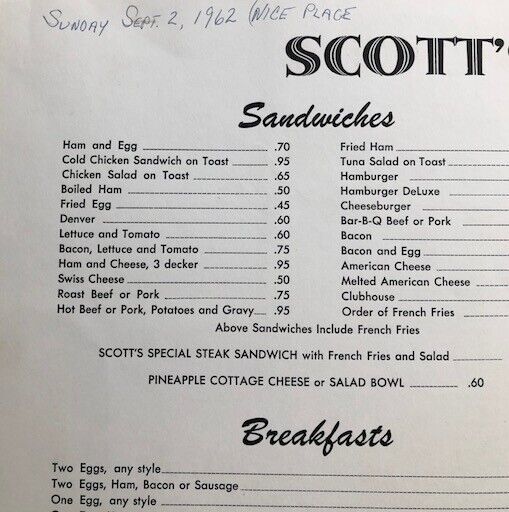 SUNDAY SEPT. 2, 1962 (NICE PLACE
SCOTT'S
Sandwiches
Ham and Egg .70
Cold Chicken Sandwich on Toast .95
Chicken Salad on Toast .65
Boiled Ham .50
Fried Egg .45
Denver .60
Lettuce and Tomato .60
Bacon, Lettuce and Tomato .75
Ham and Cheese, 3 decker .95
Swiss Cheese .50
Roast Beef or Pork .75
Hot Beef or Pork, Potatoes and Gravy .95
Fried Ham
Tuna Salad on Toast
Hamburger
Hamburger DeLuxe
Cheeseburger
Bar-B-Q Beef or Pork
Bacon
Bacon and Egg
American Cheese
Melted American Cheese
Clubhouse
Order of French Fries
Above Sandwiches Include French Fries
SCOTT'S SPECIAL STEAK SANDWICH with French Fries and Salad
PINEAPPLE COTTAGE CHEESE or SALAD BOWL .60
Breakfasts
Two Eggs, any style
Two Eggs, Ham, Bacon or Sausage
One Egg, any style